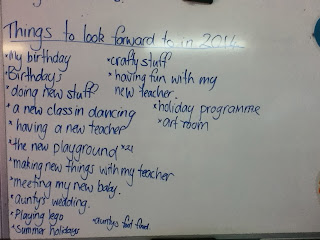 Things to look forward to in 2014
*My birthday
*Birthdays
*doing new stuff
*a new class in dancing
*having a new teacher
*the new playground *21
*making new things with my teacher
*meeting my new baby.
*aunty's wedding.
*Playing lego
*Summer holidays
*crafty stuff
*having fun with my
new teacher.
*holiday programme
*art room
*aunty's